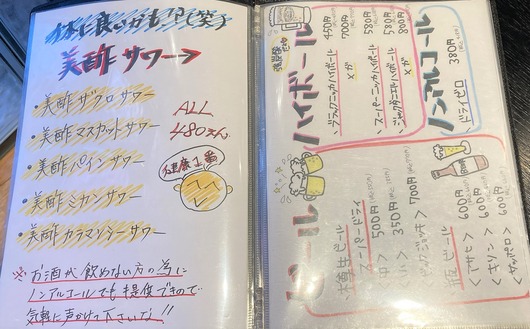 体に良いかも!?(笑)
美酢サワー
・美酢ザクロサワー
・美酢マスカットサワー
・美酢パインサワー
・美酢ミカンサワー
・美酢カラマンシーサワー
ALL
480えん
健康1番
※お酒が飲めない方の為に
ノンアルコールでも提供できので
気軽に声かけて下さいな!!
ハイボール
ブラックニッカハイボール
450円
メガ
700円
スーパーニッカハイボール
580円
ジャックダニエルハイボール
580円
メガ
800円
ノンアルコール
ドライゼロ
380円
ビール
樽生ビール
スーパードライ
中>
500円
小>
350円
700円
瓶ビール
<アサヒ>
600円
<キリン>
600円
<サッポロ>
600円